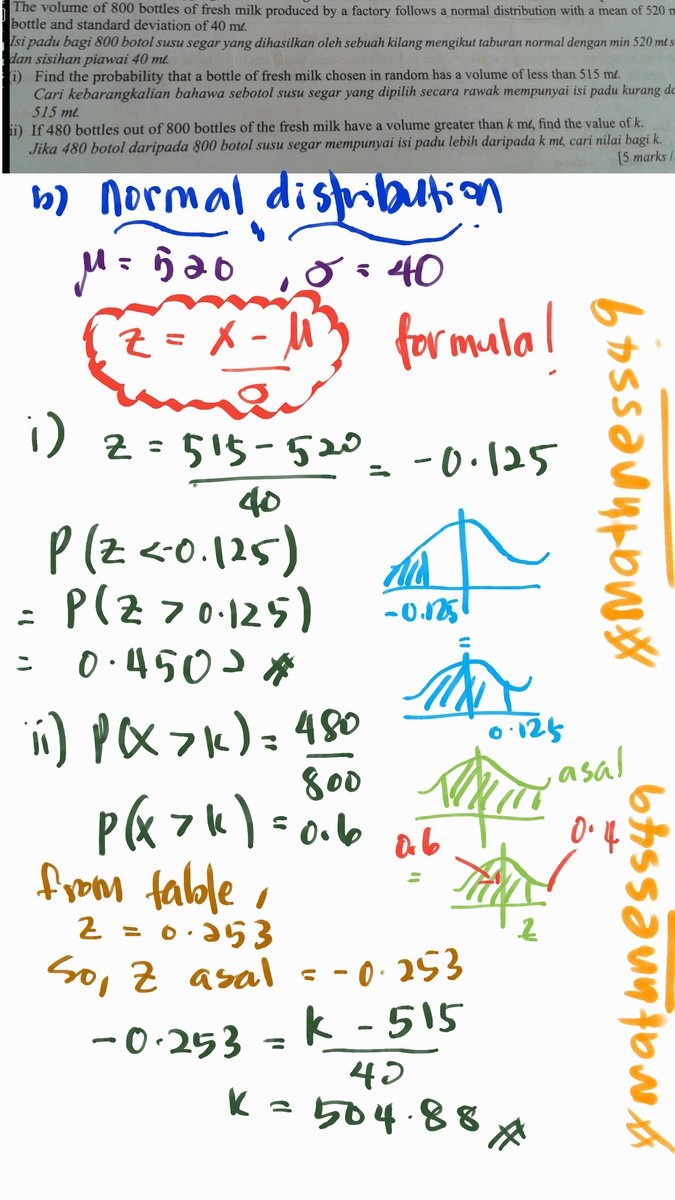 The volume of 800 bottles of fresh milk produced by a factory follows a normal distribution with a mean of 520 m
bottle and standard deviation of 40 mℓ.
Isi padu bagi 800 botol susu segar yang dihasilkan oleh sebuah kilang mengikut taburan normal dengan min 520 mℓ s
dan sisihan piawai 40 mℓ.
(i) Find the probability that a bottle of fresh milk chosen in random has a volume of less than 515 mℓ.
Cari kebarangkalian bahawa sebotol susu segar yang dipilih secara rawak mempunyai isi padu kurang da
515 mℓ
ii) If 480 bottles out of 800 bottles of the fresh milk have a volume greater than k mℓ, find the value of k.
Jika 480 botol daripada 800 botol susu segar mempunyai isi padu lebih daripada k mℓ, cari nilai bagi k.
[5 marks /
b) normal distribution
μ = 520 , σ = 40
z = x - μ / σ formula!
i) z = 515 - 520 / 40 = -0.125
P(z <-0.125)
-0.125
= P(z > 0.125)
=
= 0.4503 #
0.125
ii) P(x > k) = 480 / 800
asal
P(x > k) = 0.6
0.6
0.4
=
z
from table,
z = 0.253
So, z asal = -0.253
-0.253 = k - 515 / 40
k = 504.88 #
#mathness49
#mathness49